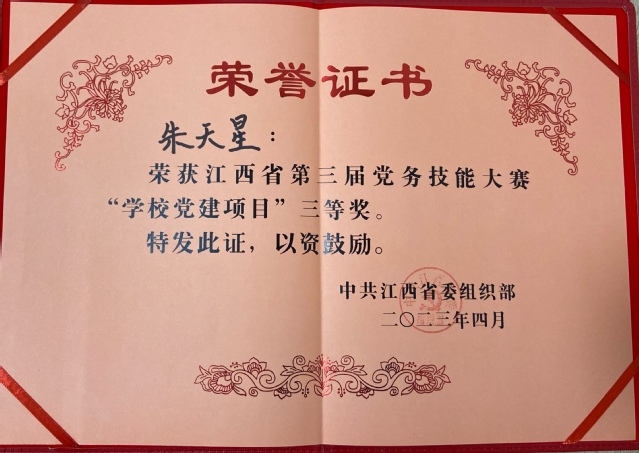 荣誉证书
朱天星：
荣获江西省第三届党务技能大赛
“学校党建项目”三等奖。
特发此证，以资鼓励。
中共江西省委组织部
二〇二三年四月